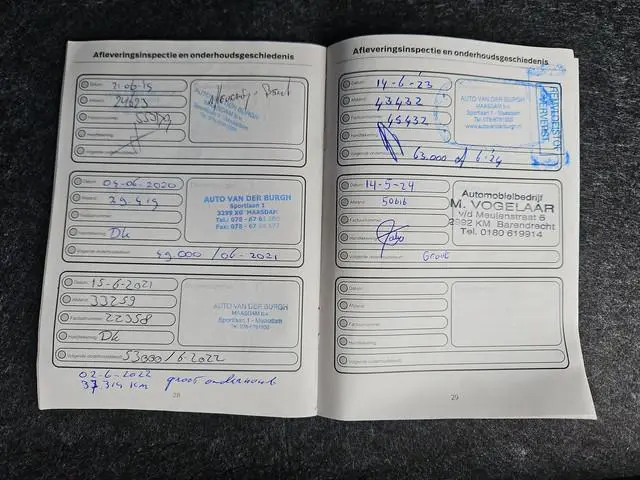 Afleveringsinspectie en onderhoudsgeschiedenis
Datum:
Afstand: 24623
Factuurnummer:
Handtekening:
Volgende onderhoudsbeurt:
AUTO VAN DER BURGH
Datum: 04-06-2020
Afstand: 29.419
Factuurnummer:
Handtekening: DK
Volgende onderhoudsbeurt: 49000 / 06-2021
AUTO VAN DER BURGH
Sportlaan 1
3299 XG MAASDAM
Tel.: 078 - 67 61
Fax: 078 - 67
Datum: 15-6-2021
Afstand: 33259
Factuurnummer: 22358
Handtekening: DK
Volgende onderhoudsbeurt: 53000 / 6-2022
AUTO VAN DER BURGH
MAASDAM b.v.
Sportlaan 1 - Maasdam
Tel. 078-6761500
02-6-2022
37.314 KM groot onderhoud
28
Afleveringsinspectie en onderhoudsgeschiedenis
Datum: 14-6-23
Afstand: 43432
Factuurnummer: 45432
Handtekening:
Volgende onderhoudsbeurt: 63.000 of 6-24
AUTO VAN DER BURGH
MAASDAM b.v.
Sportlaan 1 - Maasdam
REMVLOEISTOF
VERVERST
Datum: 14-5-24
Afstand: 50616
Factuurnummer:
Handtekening:
Volgende onderhoudsbeurt: Groot
Automobielbedrijf
M. VOGELAAR
v/d Meulenstraat 6
2992 KM Barendrecht
Tel. 0180 619914
Datum:
Afstand:
Factuurnummer:
Handtekening:
Volgende onderhoudsbeurt:
29